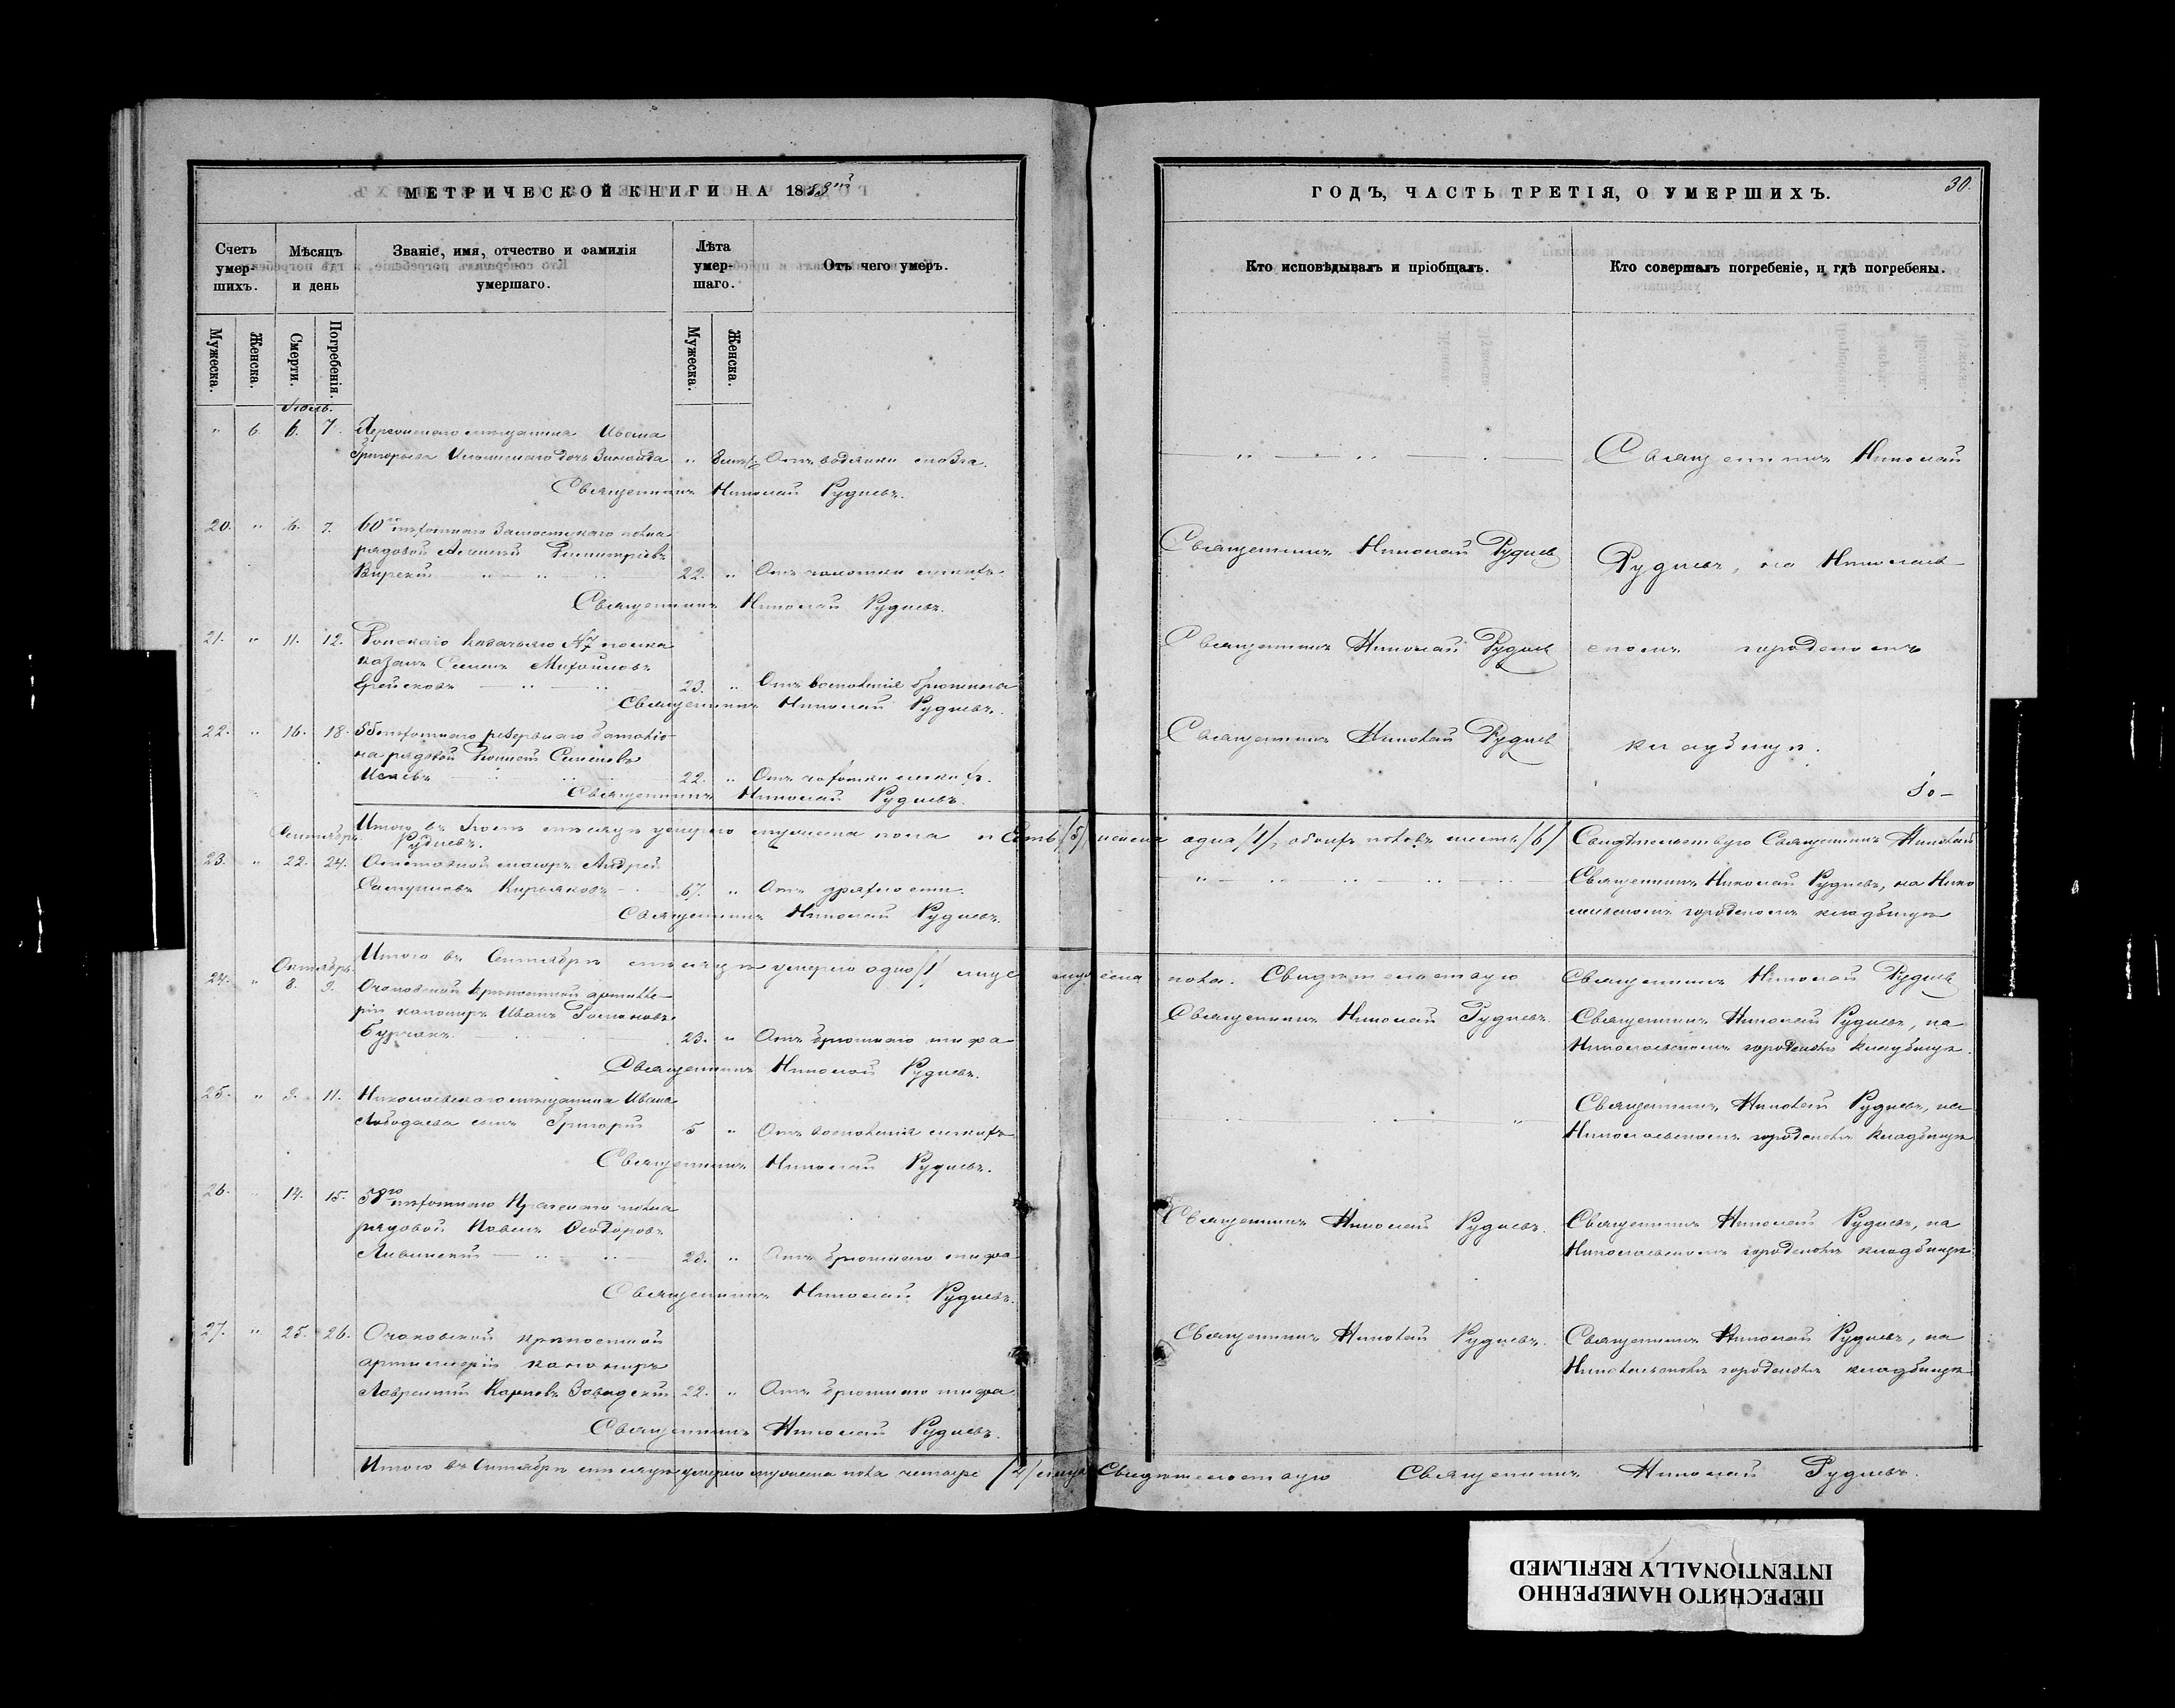 МЕТРИЧЕСКОЙ КНИГИ НА 1883й
ГОДЪ, ЧАСТЬ ТРЕТІЯ, О УМЕРШИХЪ.
30.
Счетъ умер-шихъ.
Мѣсяцъ и день
Званіе, имя, отчество и фамилія умершаго.
Лѣта умер-шаго.
Отъ чего умеръ.
Кто исповѣдывалъ и пріобщалъ.
Кто совершалъ погребеніе, и гдѣ погребены.
Мужеска. Женска. Смерти. Погребенія. Мужеска. Женска.
" 6. 6. 7. Херсонскаго мѣщанина Ивана
Григорьева дочь Зинаида " Отъ водянки мозга.
Священникъ Николай Рудневъ.
Священникъ Николай
20. " 6. 7. 60го пѣхотнаго Замостскаго полка
рядовой Алексѣй Димитріевъ
22. " Отъ чахотки легкихъ
Священникъ Николай Рудневъ.
Священникъ Николай Рудневъ
Рудневъ, на Николаев-
21. " 11. 12. Донскаго казачьяго № 7 полка
казакъ Семенъ Михайловъ
23. " Отъ воспаленія брюшины
Священникъ Николай Рудневъ.
Священникъ Николай Рудневъ
скомъ городскомъ
22. " 16. 18. пѣхотнаго резервнаго баталіо-
на рядовой Семеновъ
22. " Отъ чахотки легкихъ.
Священникъ Николай Рудневъ.
Священникъ Николай Рудневъ
кладбищѣ.
Итого въ мѣсяцѣ умерло мужеска пола пять /5/, женска одна /1/, обоихъ половъ шесть /6/ Свидѣтельствую Священникъ Николай
Рудневъ.
Сентябрь
23. " 22. 24. Отставной маіоръ Андрей
Кирьяковъ 67. " Отъ дряхлости.
Священникъ Николай Рудневъ.
Священникъ Николай Рудневъ, на Нико
лаевскомъ городскомъ кладбищѣ
Итого въ Сентябрѣ мѣсяцѣ умерло одно /1/ лице мужеска пола. Свидѣтельствую Священникъ Николай Рудневъ
Октябрь
24. " 8. 9. Очаковской крѣпостной артилле-
ріи канониръ Иванъ Романовъ
Бурчакъ 23. " Отъ брюшнаго тифа
Священникъ Николай Рудневъ.
Священникъ Николай Рудневъ.
Священникъ Николай Рудневъ, на
Николаевскомъ городскомъ кладбищѣ.
25. " 9. 11. Николаевскаго мѣщанина Ивана
Лободаева сынъ Григорій 5 " Отъ воспаленія легкихъ
Священникъ Николай Рудневъ.
Священникъ Николай Рудневъ, на
Николаевскомъ городскомъ кладбищѣ
26. " 14. 15. 58го пѣхотнаго Прагскаго полка
рядовой Павелъ Ѳеодоровъ
23. " Отъ брюшнаго тифа
Священникъ Николай Рудневъ.
Священникъ Николай Рудневъ.
Священникъ Николай Рудневъ, на
Николаевскомъ городскомъ кладбищѣ
27. " 25. 26. Очаковской крѣпостной
артиллеріи канониръ
Лаврентій Карповъ Завадскій 22. " Отъ брюшнаго тифа
Священникъ Николай Рудневъ.
Священникъ Николай Рудневъ.
Священникъ Николай Рудневъ, на
Николаевскомъ городскомъ кладбищѣ
Итого въ Октябрѣ мѣсяцѣ умерло мужеска пола четыре /4/ лица Свидѣтельствую Священникъ Николай Рудневъ.
ПЕРЕСНЯТО НАМЕРЕННО
INTENTIONALLY REFILMED